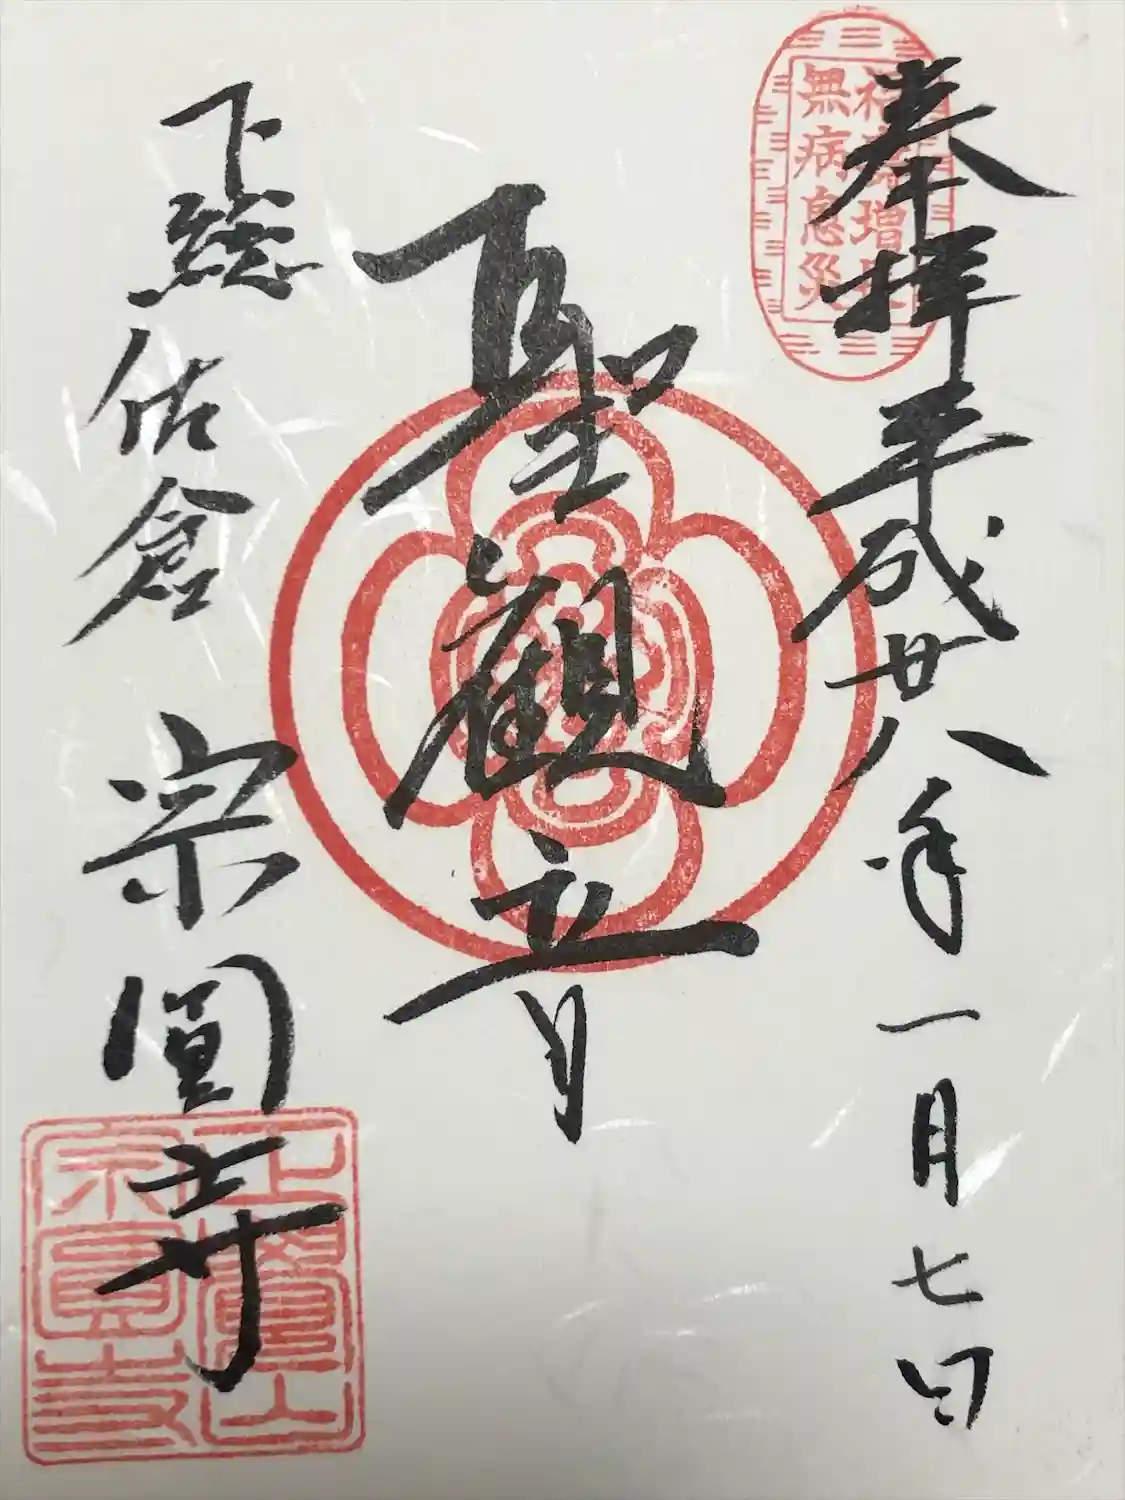 奉拝 平成廿八年一月七日
無病息災
聖觀音
下総佐倉 宗圓寺
宗圓寺